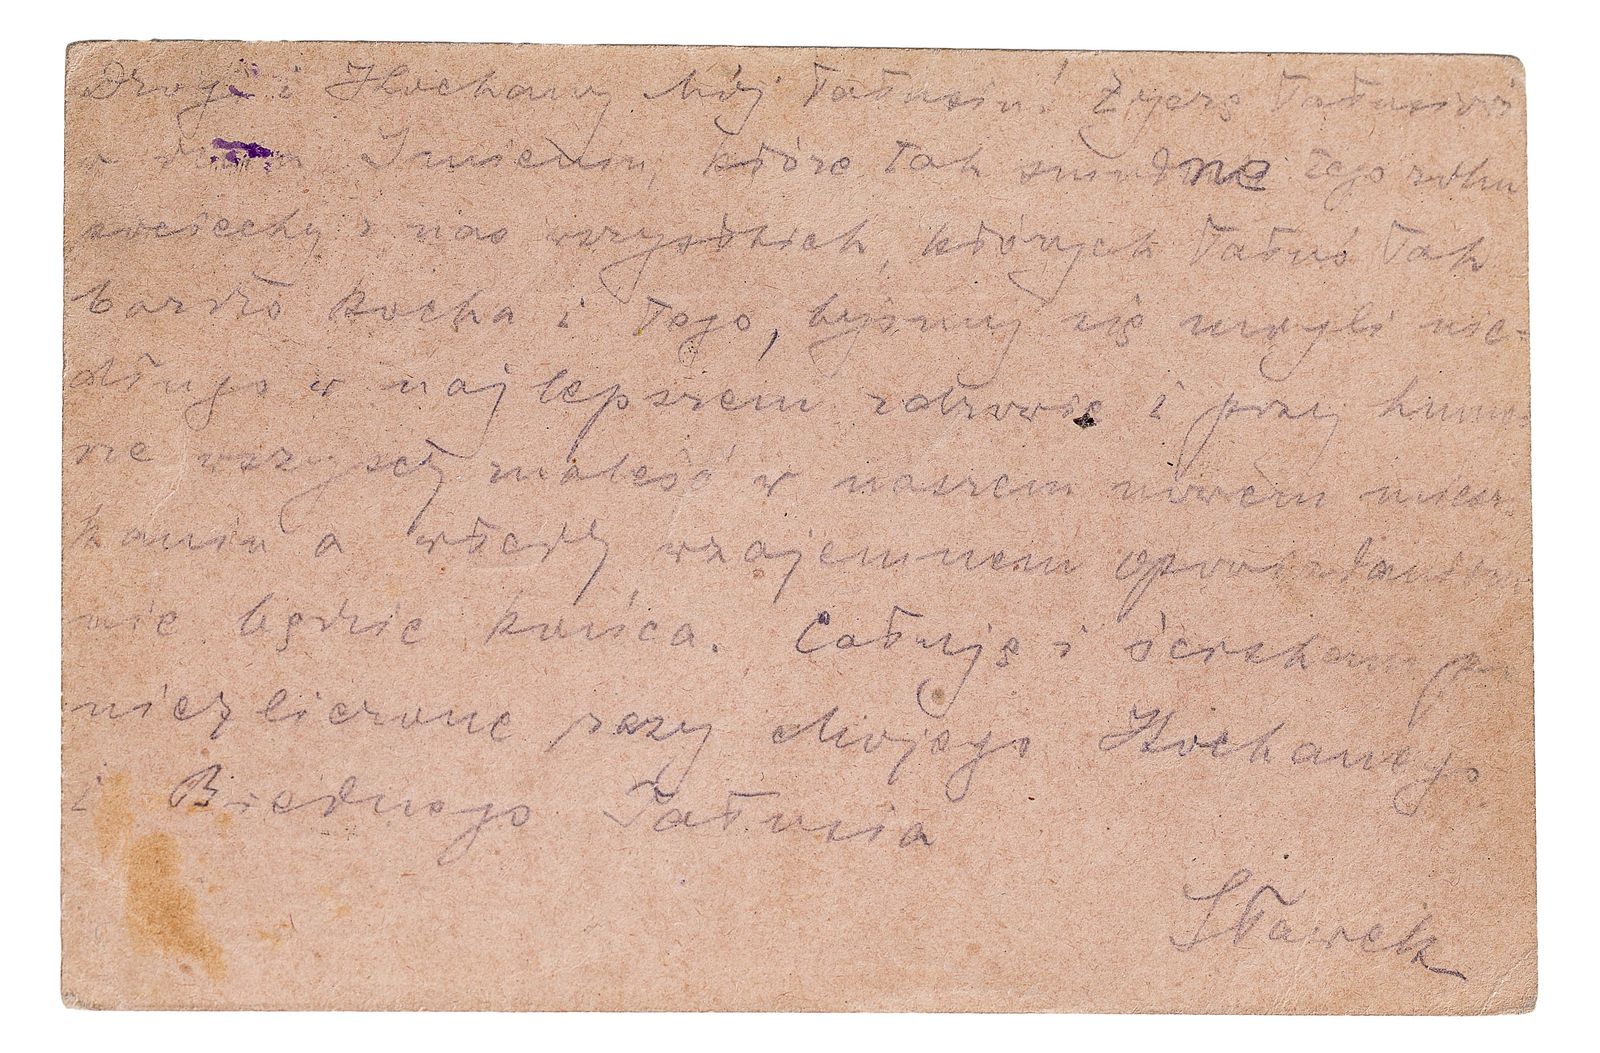 Drogi i Kochany Mój Tatusiu! Życzę Tatusiowi
w dniu Imienin, które tak smutne tego roku
pociechy z nas wszystkich, których Tatuś tak
bardzo kocha i tego, byśmy się mogli nie-
długo w najlepszem zdrowie i przy humo-
rze wszyscy znaleść w naszem nowem miesz-
kaniu a wtedy wzajemnem opowiadaniom
nie będzie końca. Całuję i ściskam po
niezliczone razy Mojego Kochanego
i Biednego Tatusia
Sławek